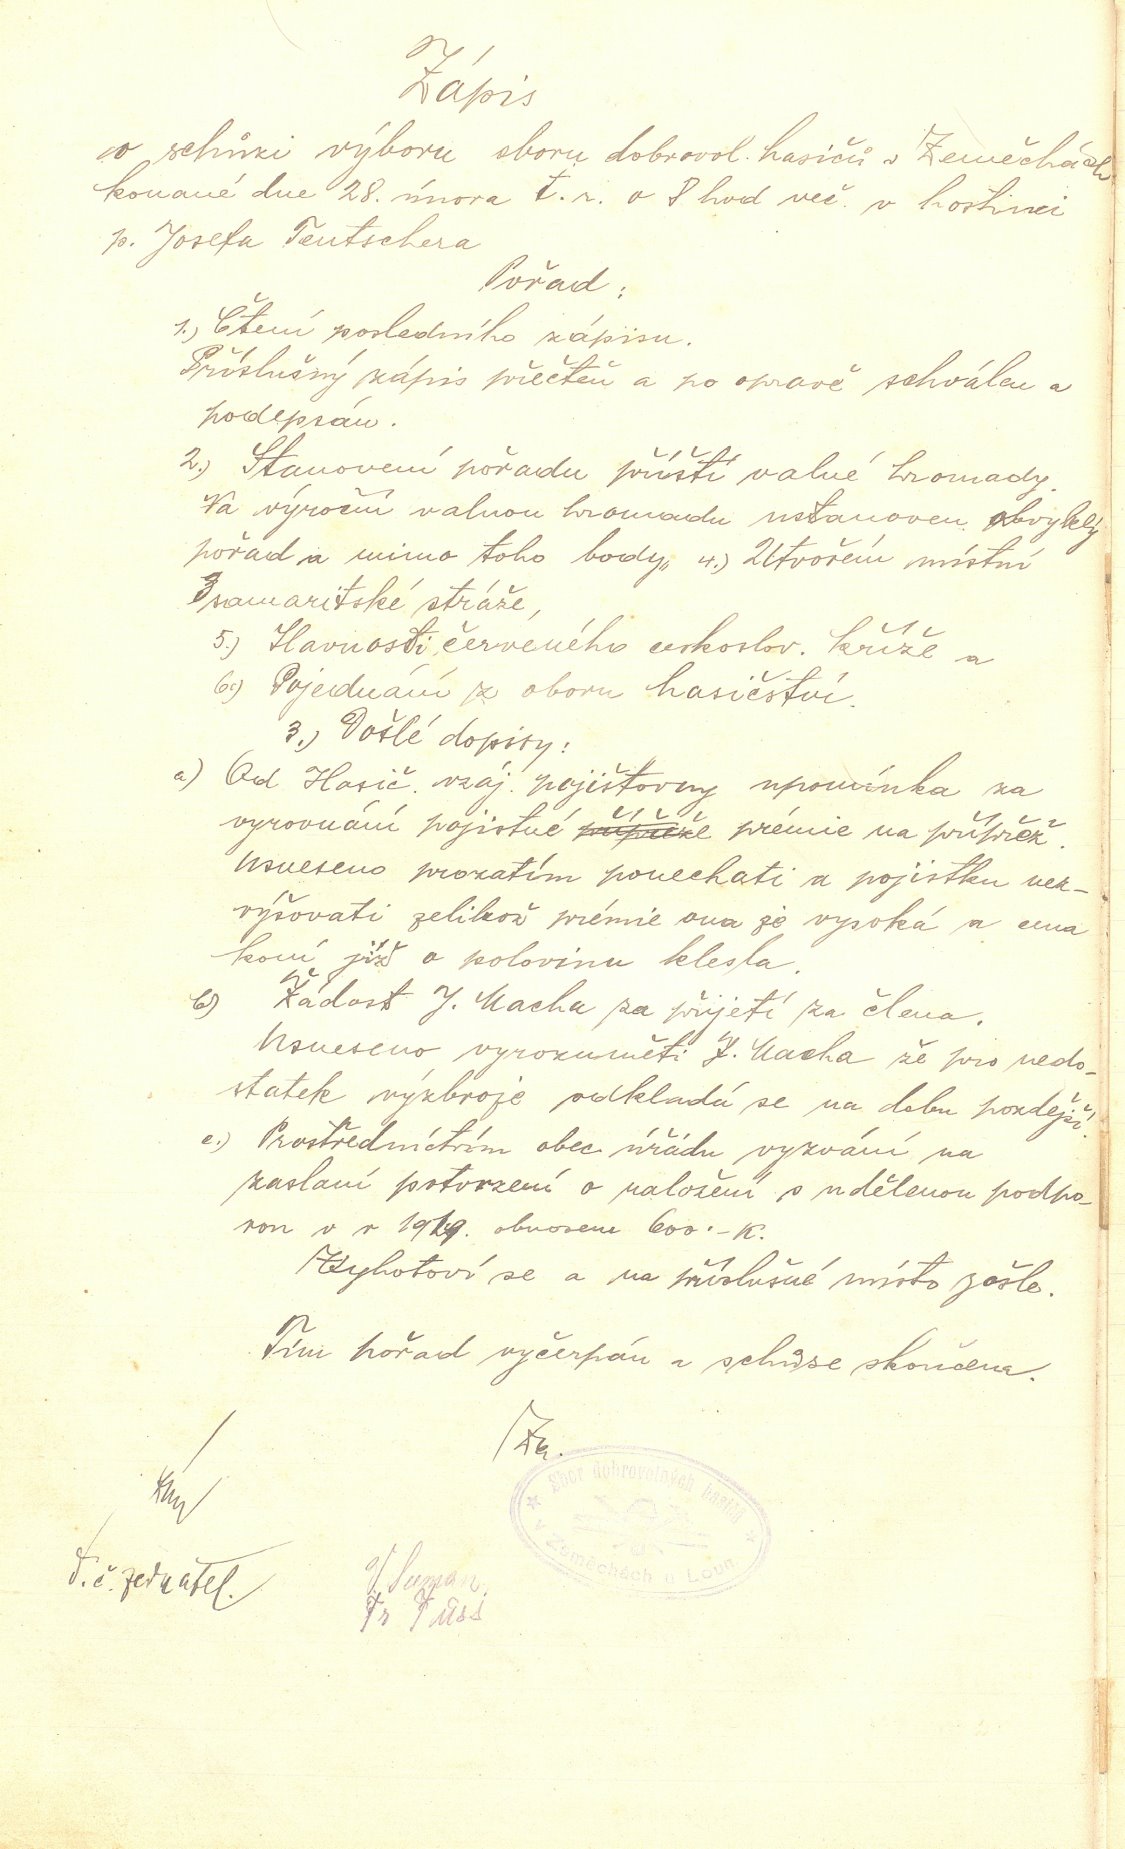 Zápis
o schůzi výboru sboru dobrovol. hasičů v Zeměchách
konané dne 28. února t. r. o 8 hod več. v hostinci
p. Josefa Teutschera
Pořad:
1.) Čtení posledního zápisu.
Příslušný zápis přečten a po opravě schválen a
podepsán.
2.) Stanovení pořadu příští valné hromady.
Na výroční valnou hromadu ustanoven obvyklý
pořad a mimo toho body„ 4.) Utvoření místní
samaritské stráže,
5.) Slavnosti červeného českoslov. kříže a
6.) Pojednání z oboru hasičství.
3.) Došlé dopisy:
a) Od Hasič. vzáj. pojišťovny upomínka za
vyrovnání pojistné přípřeže prémie na přípřež.
Usneseno prozatím ponechati a pojistku nez-
výšovati jelikož prémie ona je vysoká a cena
koní již o polovinu klesla.
b) Žádost J. Macha za přijetí za člena.
Usneseno vyrozuměti J. Macha že pro nedo-
statek výzbroje odkládá se na dobu pozdější.
c.) Prostřednictvím obec. úřadu vyzvání na
zaslaní potvrzení o naložení s udělenou podpo-
rou v r 1919. obnosem 600·- K.
Vyhotoví se a na příslušné místo zašle.
Tím pořad vyčerpán a schůze skončena.
Sbor dobrovolných hasičů
v Zeměchách u Loun
t. č. jednatel.
Fr Tůss